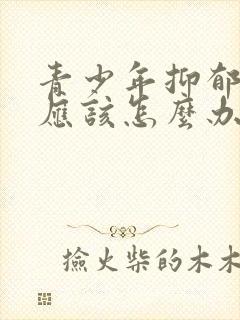 青少年抑郁
應該怎麼办
撿火柴的木木